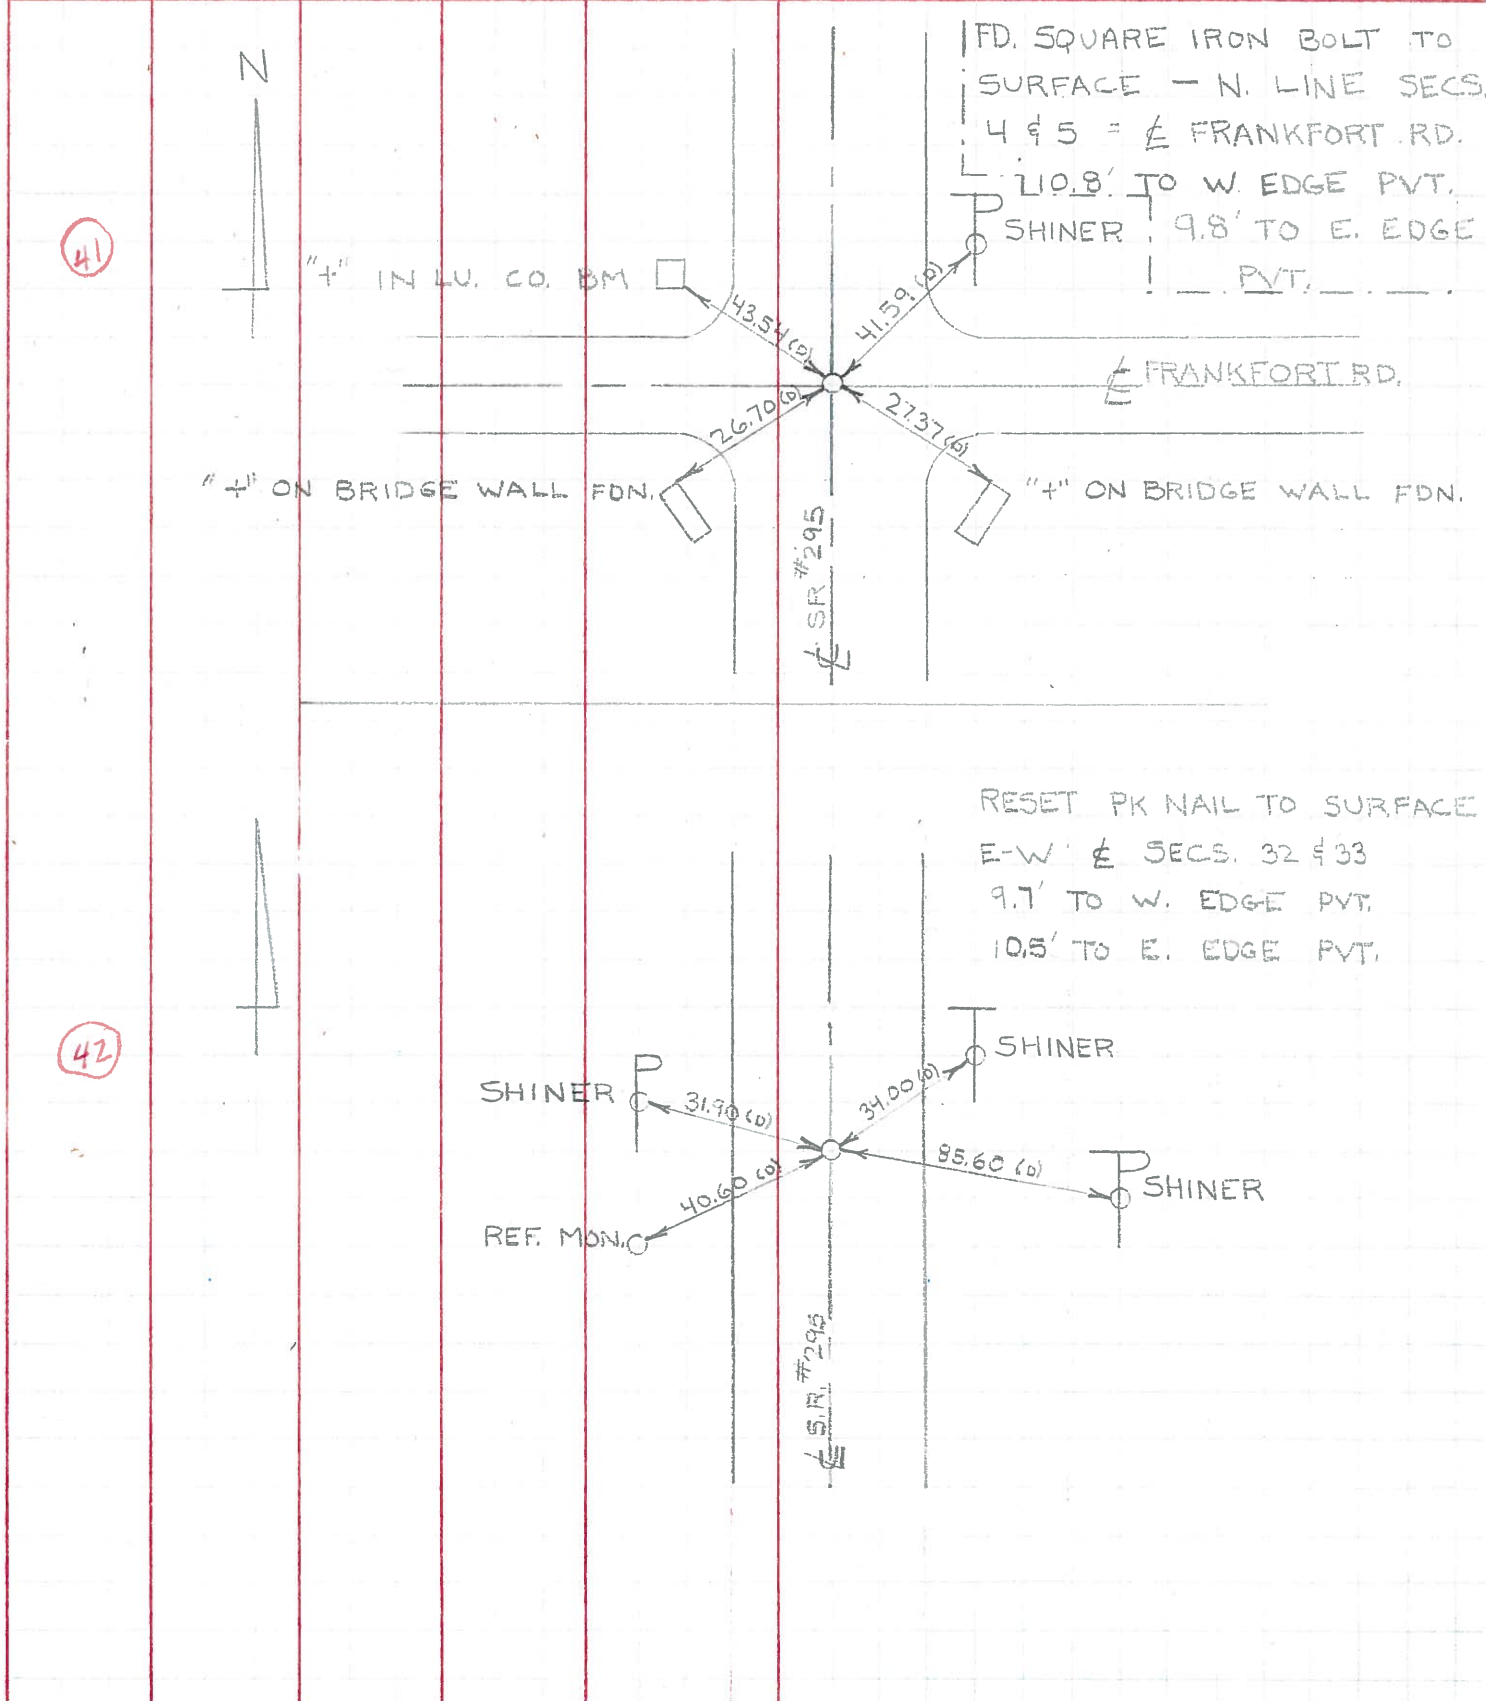 N
FD. SQUARE IRON BOLT TO
SURFACE — N. LINE SECS.
4 & 5 = ℄ FRANKFORT RD.
10.8' TO W. EDGE PVT.
9.8' TO E. EDGE
PVT.
41
SHINER
"+" IN LU. CO. BM
43.54 (D)
41.59 (D)
℄ FRANKFORT RD.
26.70 (D)
27.37 (D)
"+" ON BRIDGE WALL FDN.
"+" ON BRIDGE WALL FDN.
℄ SR #295
RESET PK NAIL TO SURFACE
E-W ℄ SECS. 32 & 33
9.7' TO W. EDGE PVT.
10.5' TO E. EDGE PVT.
42
SHINER
SHINER
31.90 (D)
34.00 (D)
85.60 (D)
SHINER
40.60 (D)
REF. MON.
℄ S.R. #295